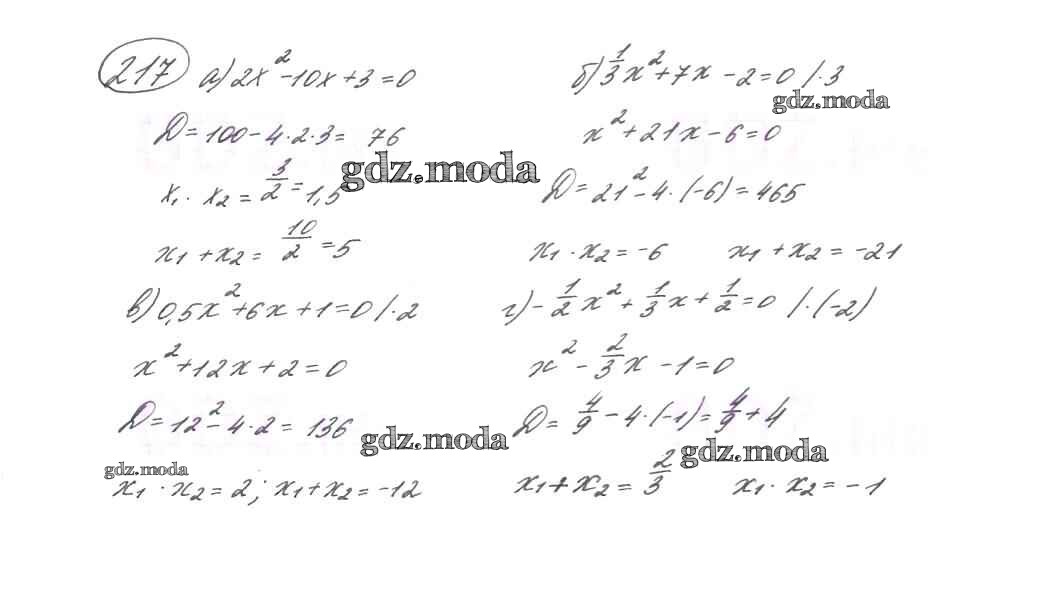 217 а) 2x² - 10x + 3 = 0
D = 100 - 4·2·3 = 76
x₁ · x₂ = 3/2 = 1,5
x₁ + x₂ = 10/2 = 5
б) 1/3x² + 7x - 2 = 0 /·3
x² + 21x - 6 = 0
D = 21² - 4·(-6) = 465
x₁ · x₂ = -6 x₁ + x₂ = -21
в) 0,5x² + 6x + 1 = 0 /·2
x² + 12x + 2 = 0
D = 12² - 4·2 = 136
x₁ · x₂ = 2; x₁ + x₂ = -12
г) -1/2x² + 1/3x + 1/2 = 0 /·(-2)
x² - 2/3x - 1 = 0
D = 4/9 - 4·(-1) = 4/9 + 4
x₁ + x₂ = 2/3 x₁ · x₂ = -1
gdz.moda
gdz.moda
gdz.moda
gdz.moda
gdz.moda